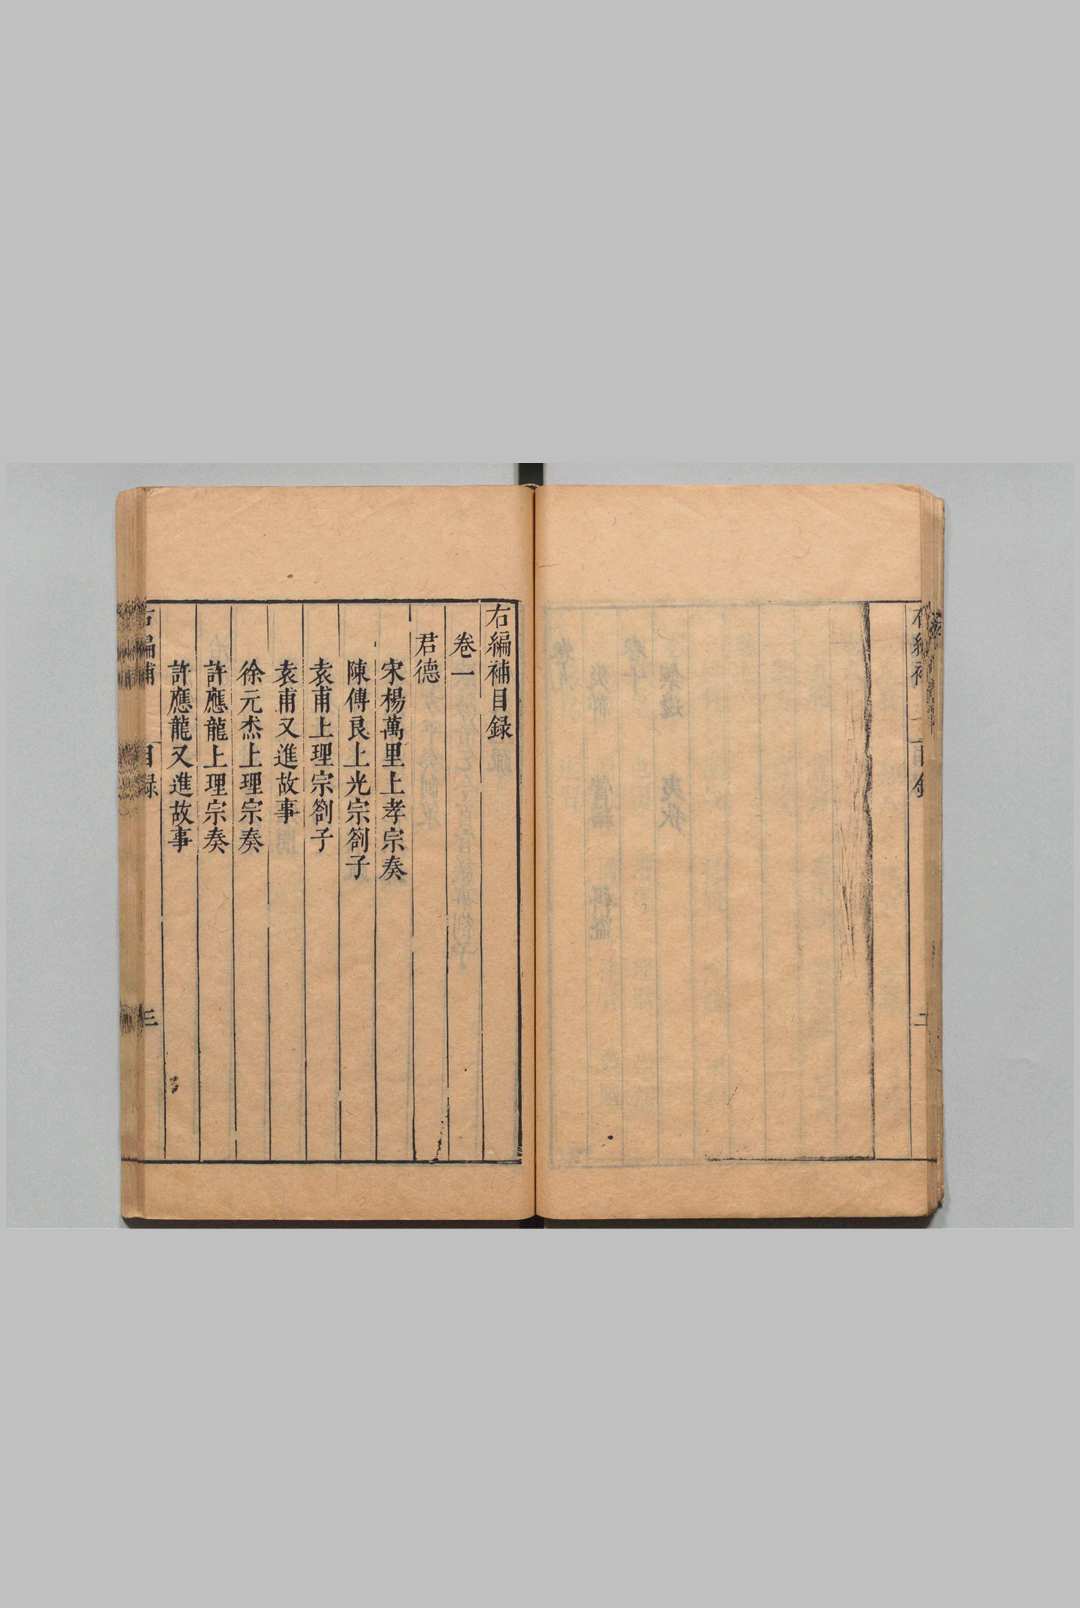 右編補目録
卷一
君德
宋楊萬里上孝宗奏
陳傅良上光宗劄子
袁甫上理宗劄子
袁甫又進故事
徐元杰上理宗奏
許應龍上理宗奏
許應龍又進故事
右編補
目録
三